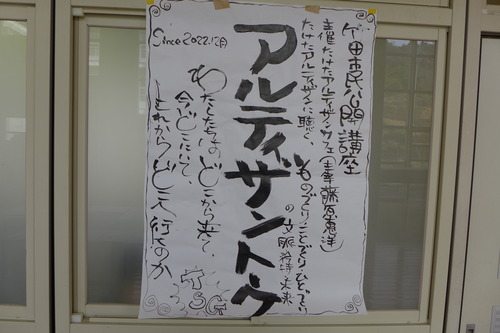 竹田市民公開講座
主催 たけたアルティザン・カフェ(主宰 藤原恵洋)
たけたアルティザンに聴く、ものづくり・ことづくり・ひとづくり
の文脈・矜持・未来
アルティザントーク
わたしたちはどこから来て、
今どこにいて、
これからどこへ行くのか
Since 2022.12月